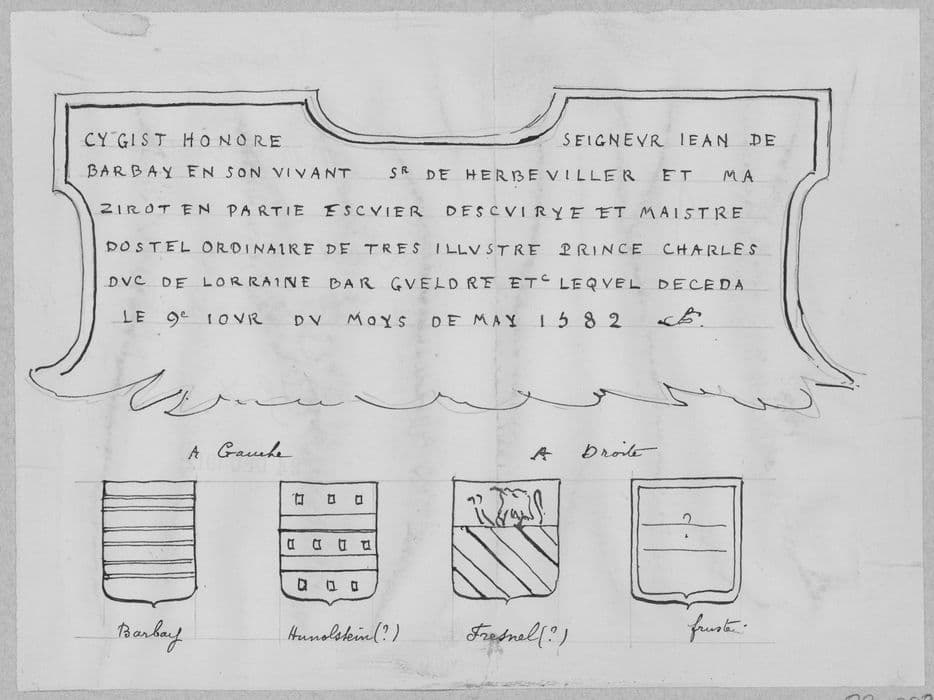 CY GIST HONORE SEIGNEVR IEAN DE
BARBAY EN SON VIVANT SR DE HERBEVILLER ET MA
ZIROT EN PARTIE ESCVIER DESCVIRYE ET MAISTRE
DOSTEL ORDINAIRE DE TRES ILLVSTRE PRINCE CHARLES
DVC DE LORRAINE BAR GVELDRE ETC LEQVEL DECEDA
LE 9e IOVR DV MOYS DE MAY 1582
A Gauche A Droite
?
Barbay Hunolstein(?) Fresnel(?) fruste